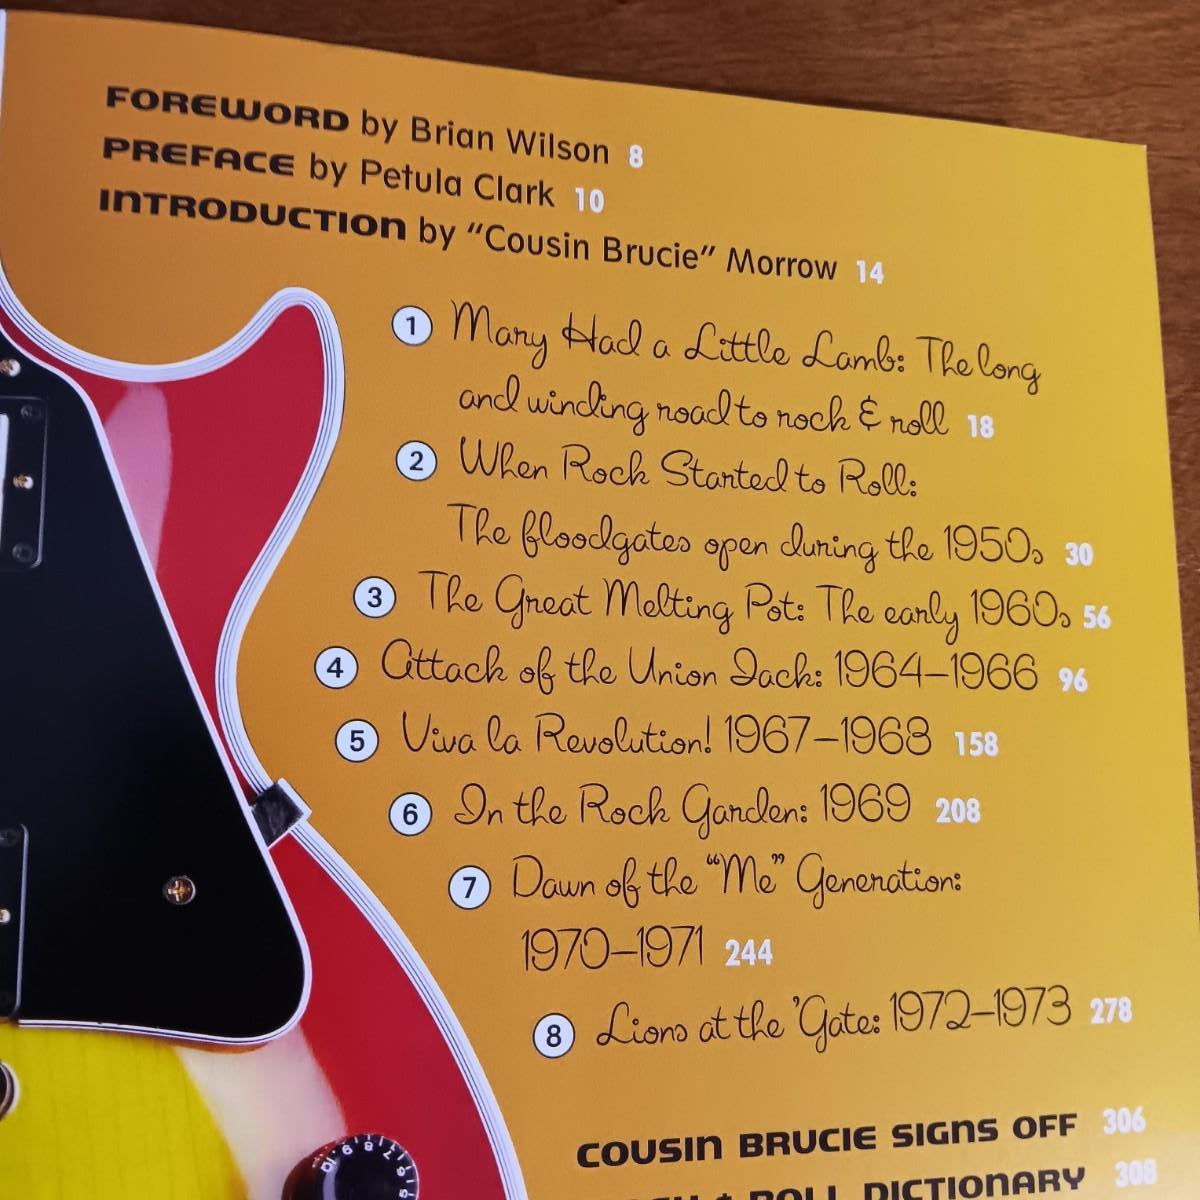 FOREWORD by Brian Wilson 8
PREFACE by Petula Clark 10
INTRODUCTION by “Cousin Brucie” Morrow 14
1 Mary Had a Little Lamb: The long
and winding road to rock & roll 18
2 When Rock Started to Roll:
The floodgates open during the 1950s 30
3 The Great Melting Pot: The early 1960s 56
4 Attack of the Union Jack: 1964–1966 96
5 Viva la Revolution! 1967–1968 158
6 In the Rock Garden: 1969 208
7 Dawn of the “Me” Generation:
1970–1971 244
8 Lions at the ’Gate: 1972–1973 278
COUSIN BRUCIE SIGNS OFF 306
ROLL DICTIONARY 308